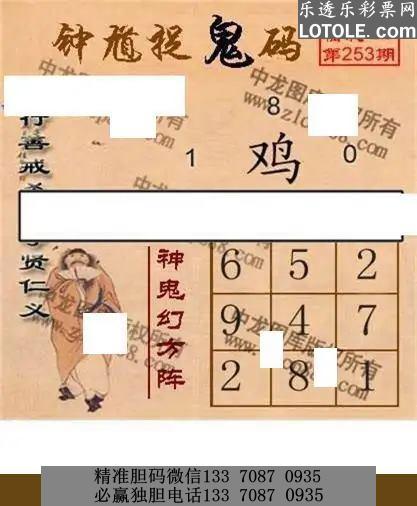 乐透乐彩票网
LOTOLE.COM
钟馗捉鬼码
第253期
行善戒
贤仁义
8
1 鸡 0
神鬼幻方阵
6 5 2
9 4 7
2 8 1
中龙图库版权所有
精准胆码微信133 7087 0935
必赢独胆电话133 7087 0935